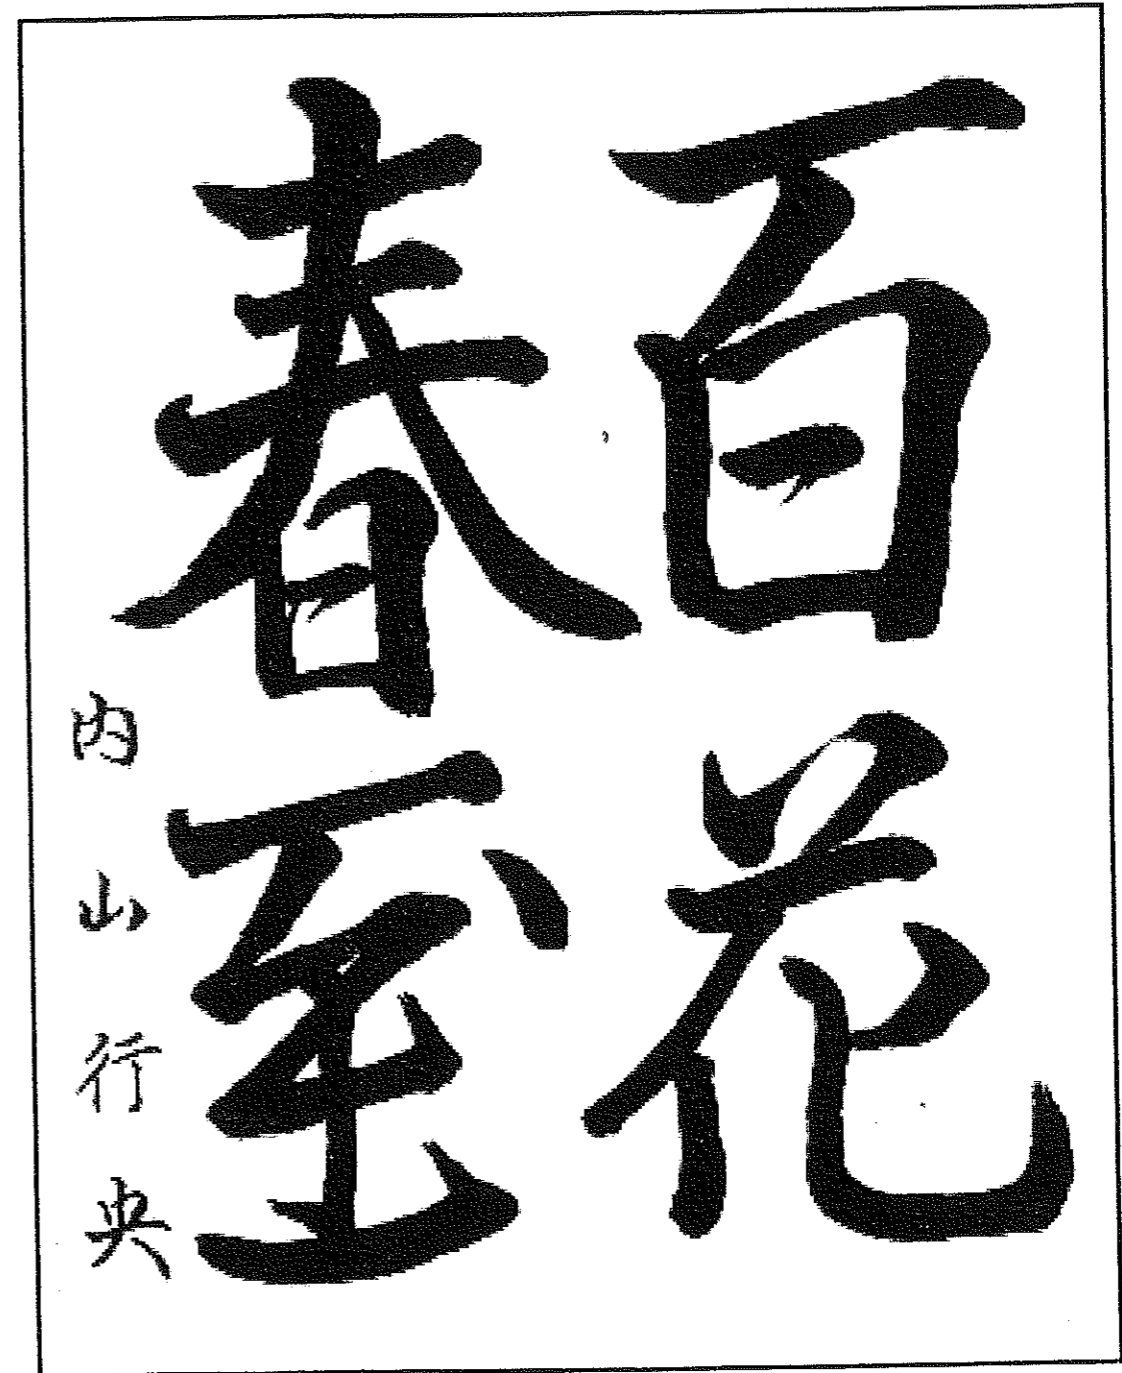 百花
春至
内山行央